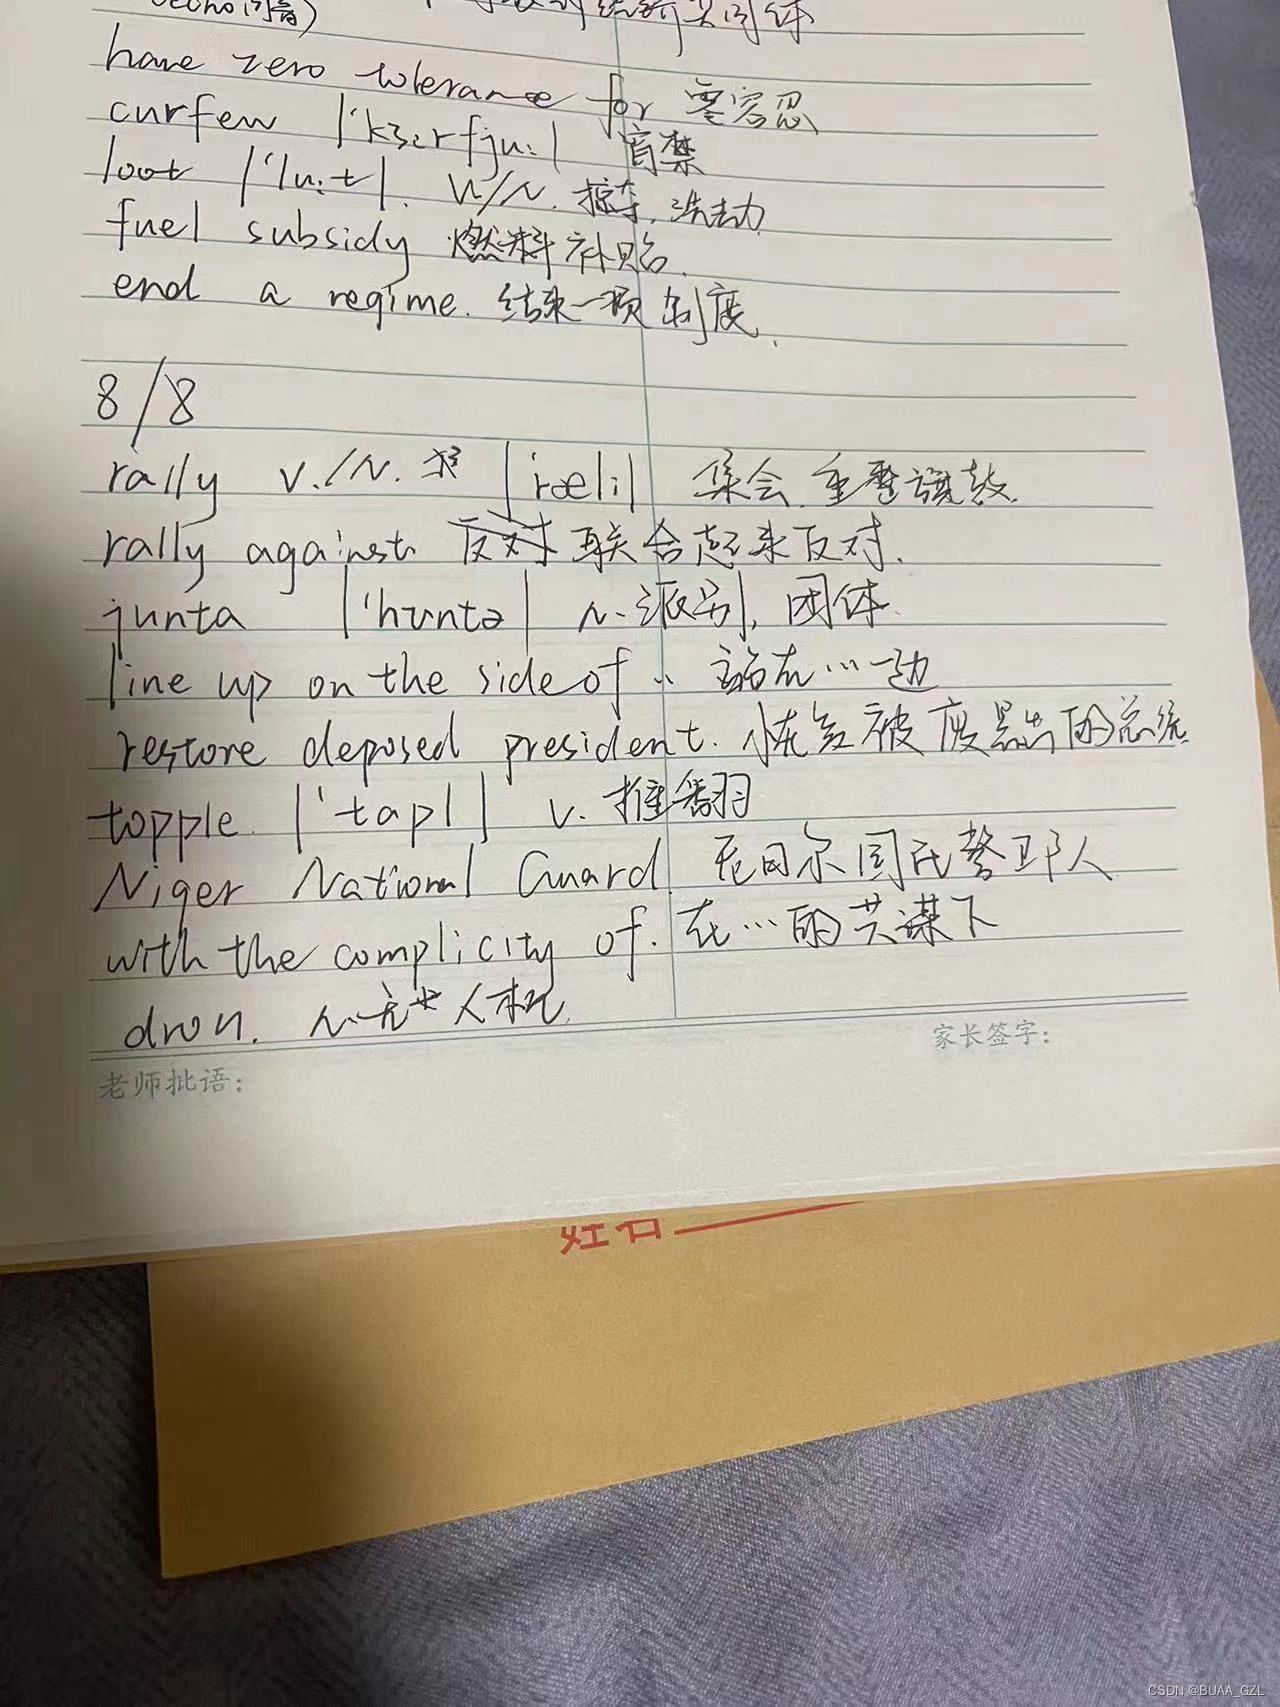 共同体
have zero tolerance for 零容忍
curfew |'kɜ:rfju:| 宵禁
loot |'lu:t|. v/n. 掠夺, 洗劫
fuel subsidy 燃料补贴.
end a regime. 结束一项制度.
8/8
rally v./n. |ræli| 集会, 重整旗鼓.
rally against. 反对 联合起来反对.
junta |'hʊntə| n. 派别, 团体.
line up on the side of .. 站在…一边
restore deposed president. 恢复被废黜的总统.
topple. |'tapl| v. 推翻
Niger National Guard. 尼日尔国民警卫人
with the complicity of. 在…的共谋下
dron. n. 无人机.
家长签字：
老师批语：
CSDN @BUAA_GZL